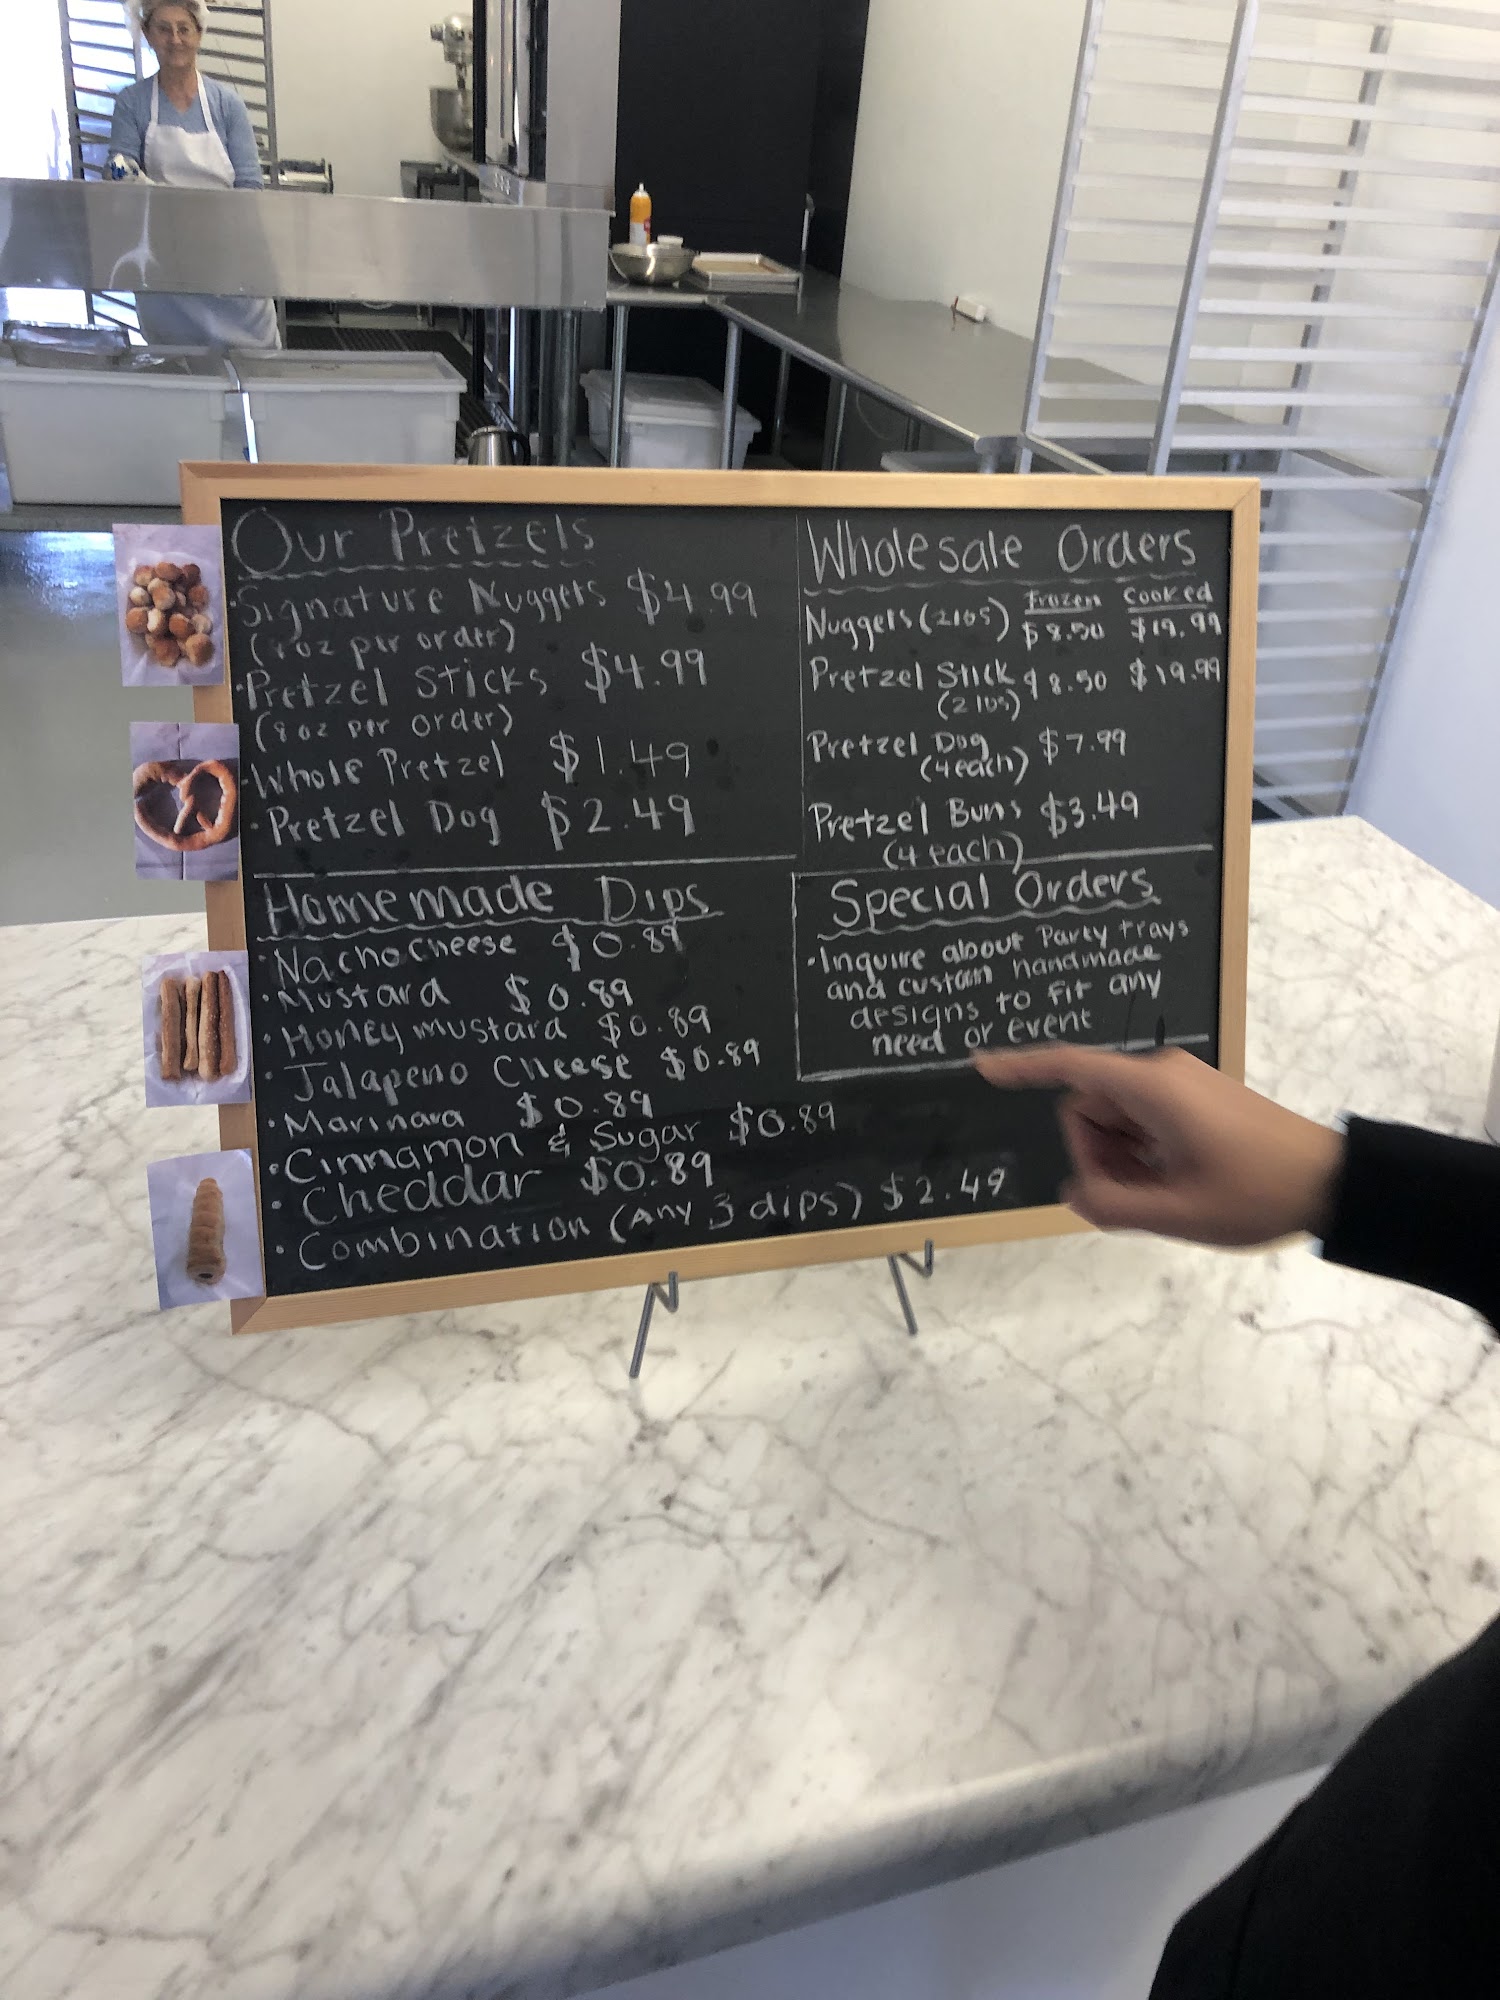 Our Pretzels
· Signature Nuggets $4.99
(8oz per order)
· Pretzel Sticks $4.99
(8oz per order)
· Whole Pretzel $1.49
· Pretzel Dog $2.49
Homemade Dips
· Nacho Cheese $0.89
· Mustard $0.89
· Honey mustard $0.89
· Jalapeno Cheese $0.89
· Marinara $0.89
· Cinnamon & Sugar $0.89
· Cheddar $0.89
· Combination (Any 3 dips) $2.49
Wholesale Orders
Frozen Cooked
Nuggets (2lbs) $8.50 $19.99
Pretzel Stick $8.50 $19.99
(2lbs)
Pretzel Dog $7.99
(4 each)
Pretzel Buns $3.49
(4 each)
Special Orders
· Inquire about Party trays
and custom handmade
designs to fit any
need or event